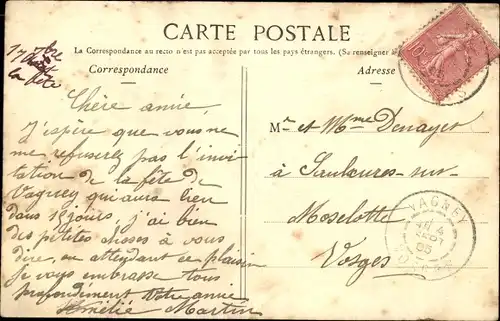 CARTE POSTALE
La Correspondance au recto n'est pas acceptée par tous les pays étrangers. (Se renseigner
Correspondance
Adresse
17
la fête
Chère amie,
J'espère que vous ne
me refuserez pas l'invi
tation de la fête de
Vagney qui aura lieu
dans 15 jours, j'ai bien
des petites choses à vous
dire, en attendant ce plaisir
je vous embrasse tous
profondément Votre amie
Amélie Martin
Mr et Mme Denayer
à Saulxures-sur-
Moselotte
Vosges
10
VAGNEY